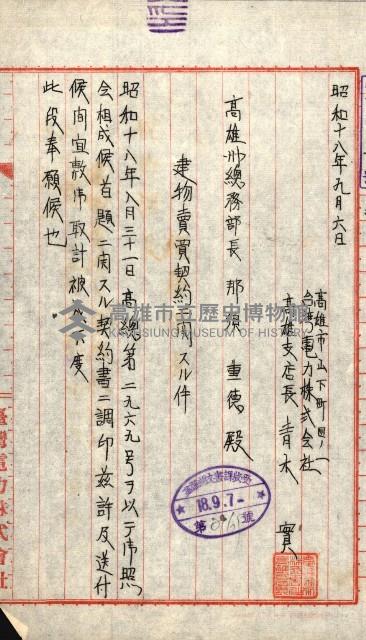 昭和十八年九月六日
高雄市山下町四ノ一
台湾電力株式会社
高雄支店長 青木 實
高雄州總務部長 那須 重徳 殿
建物賣買契約ニ関スル件
昭和十八年八月三十一日高總第二九六九号ヲ以テ御照
会相成候首題ニ関スル契約書ニ調印玆許及送付
候間宜敷御取計被成下度
此段奉願候也
18.9.7
第 號
高雄市立歷史博物館
KAOHSIUNG MUSEUM OF HISTORY
臺灣電力株式會社